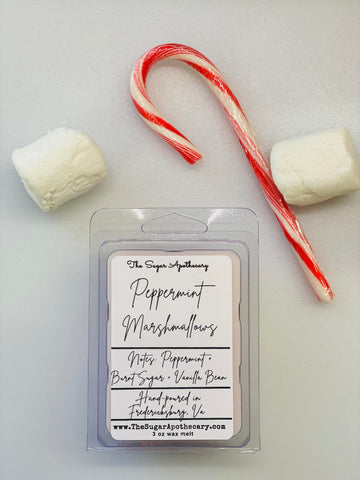 The Sugar Apothecary
Peppermint
Marshmallows
Notes: Peppermint •
Burnt Sugar • Vanilla Bean
Hand-poured in
Fredericksburg, Va
www.TheSugarApothecary.com
3 oz wax melt